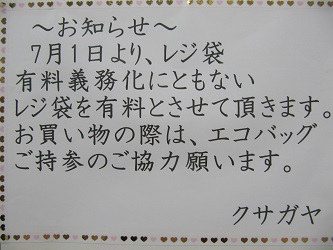 ～お知らせ～
７月１日より、レジ袋
有料義務化にともない
レジ袋を有料とさせて頂きます。
お買い物の際は、エコバッグ
ご持参のご協力願います。
クサガヤ